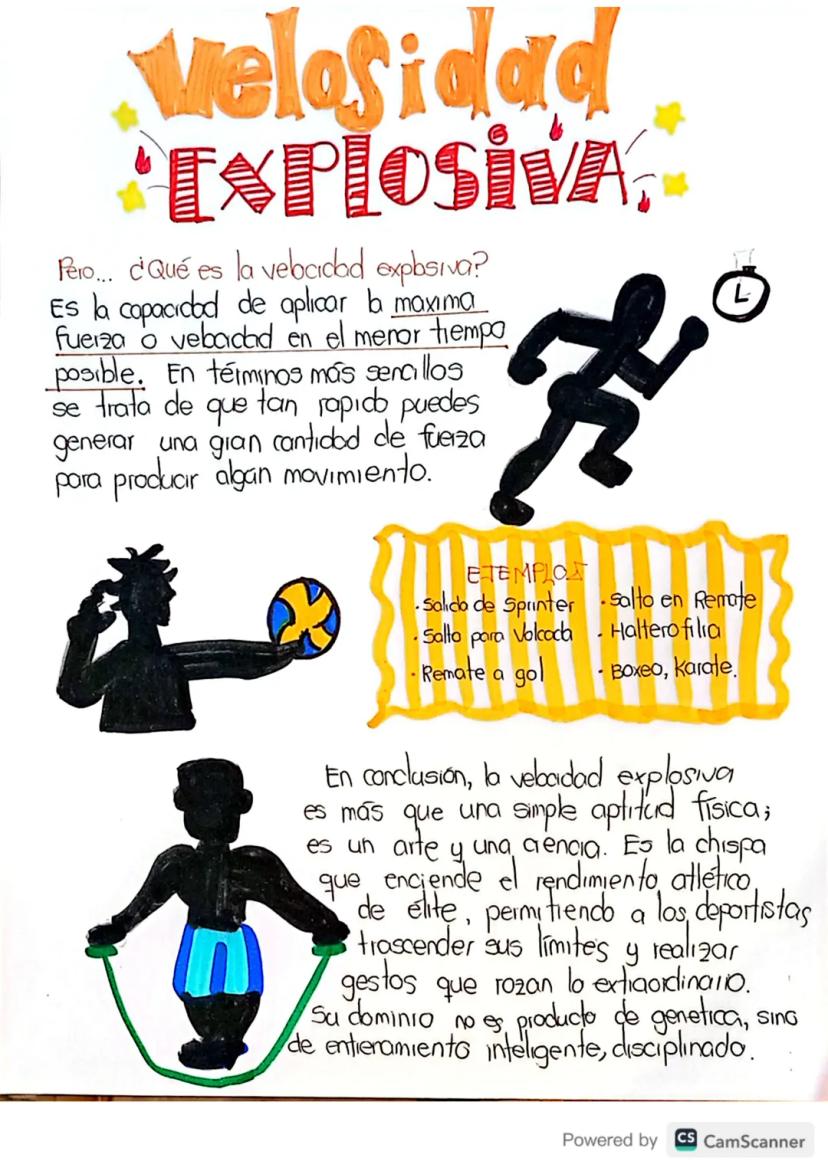 Velosidad
EXPLOSIVA
Pero... ¿Qué es la velocidad explosiva?
Es la capacidad de aplicar la maxima
fuerza o velocidad en el menor tiempo
posible. En términos más sencillos
se trata de que tan rapido puedes
generar una gran cantidad de fuerza
para producir algún movimiento.
EJEMPLOS
• Salida de Sprinter • Salto en Remate
• Salto para Volcada • Halterofilia
• Remate a gol • Boxeo, Karate.
En conclusión, la velocidad explosiva
es más que una simple aptitud física;
es un arte y una ciencia. Es la chispa
que enciende el rendimiento atlético
de élite, permitiendo a los deportistas
trascender sus límites y realizar
gestos que rozan lo extraordinario.
Su dominio no es producto de genetica, sino
de entieramiento inteligente, disciplinado.
Powered by CS CamScanner